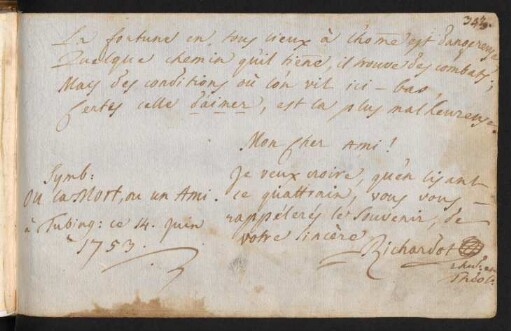 La fortune en tous lieux à l'home est dangereuse
Quelque chemin qu'il tiene, il trouve des combats;
Mais des conditions où l'on vit ici-bas,
Certes celle d'aimer, est la plus malheureuse.
Mon Cher Ami!
Je veux croire, qu'en lisant
ce quattrain, vous vous
rappélerés le Souvenir, de
votre sincère
Richardot
Théol:
Symb:
Ou la Mort, ou un Ami.
à Tubing: ce 14. Juin
1753.